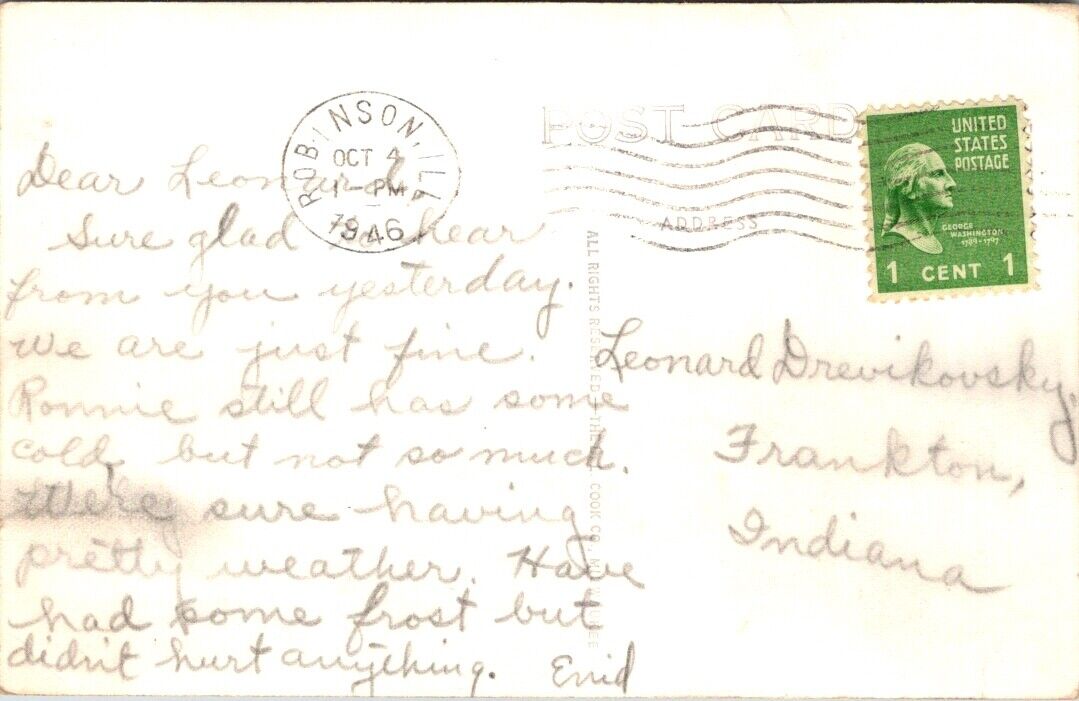 POST CARD
ROBINSON, ILL.
OCT 4
1 - PM
1946
UNITED
STATES
POSTAGE
GEORGE
WASHINGTON
1789-1797
1 CENT 1
ADDRESS
Dear Leonard,
Sure glad hear
from you yesterday.
We are just fine.
Ronnie still has some
cold, but not so much.
We're sure having
pretty weather. Have
had some frost but
didn't hurt anything. Enid
ALL RIGHTS RESERVED - THE L. L. COOK CO., MILWAUKEE
Leonard Drevikovsky,
Frankton,
Indiana